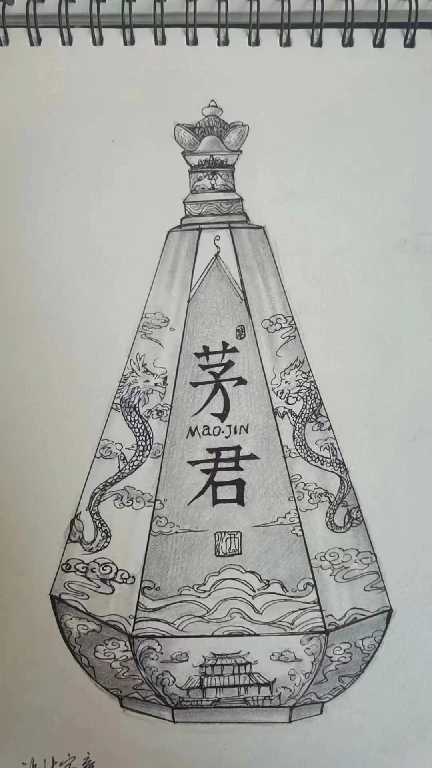 茅
MaO.JIN
君
酒